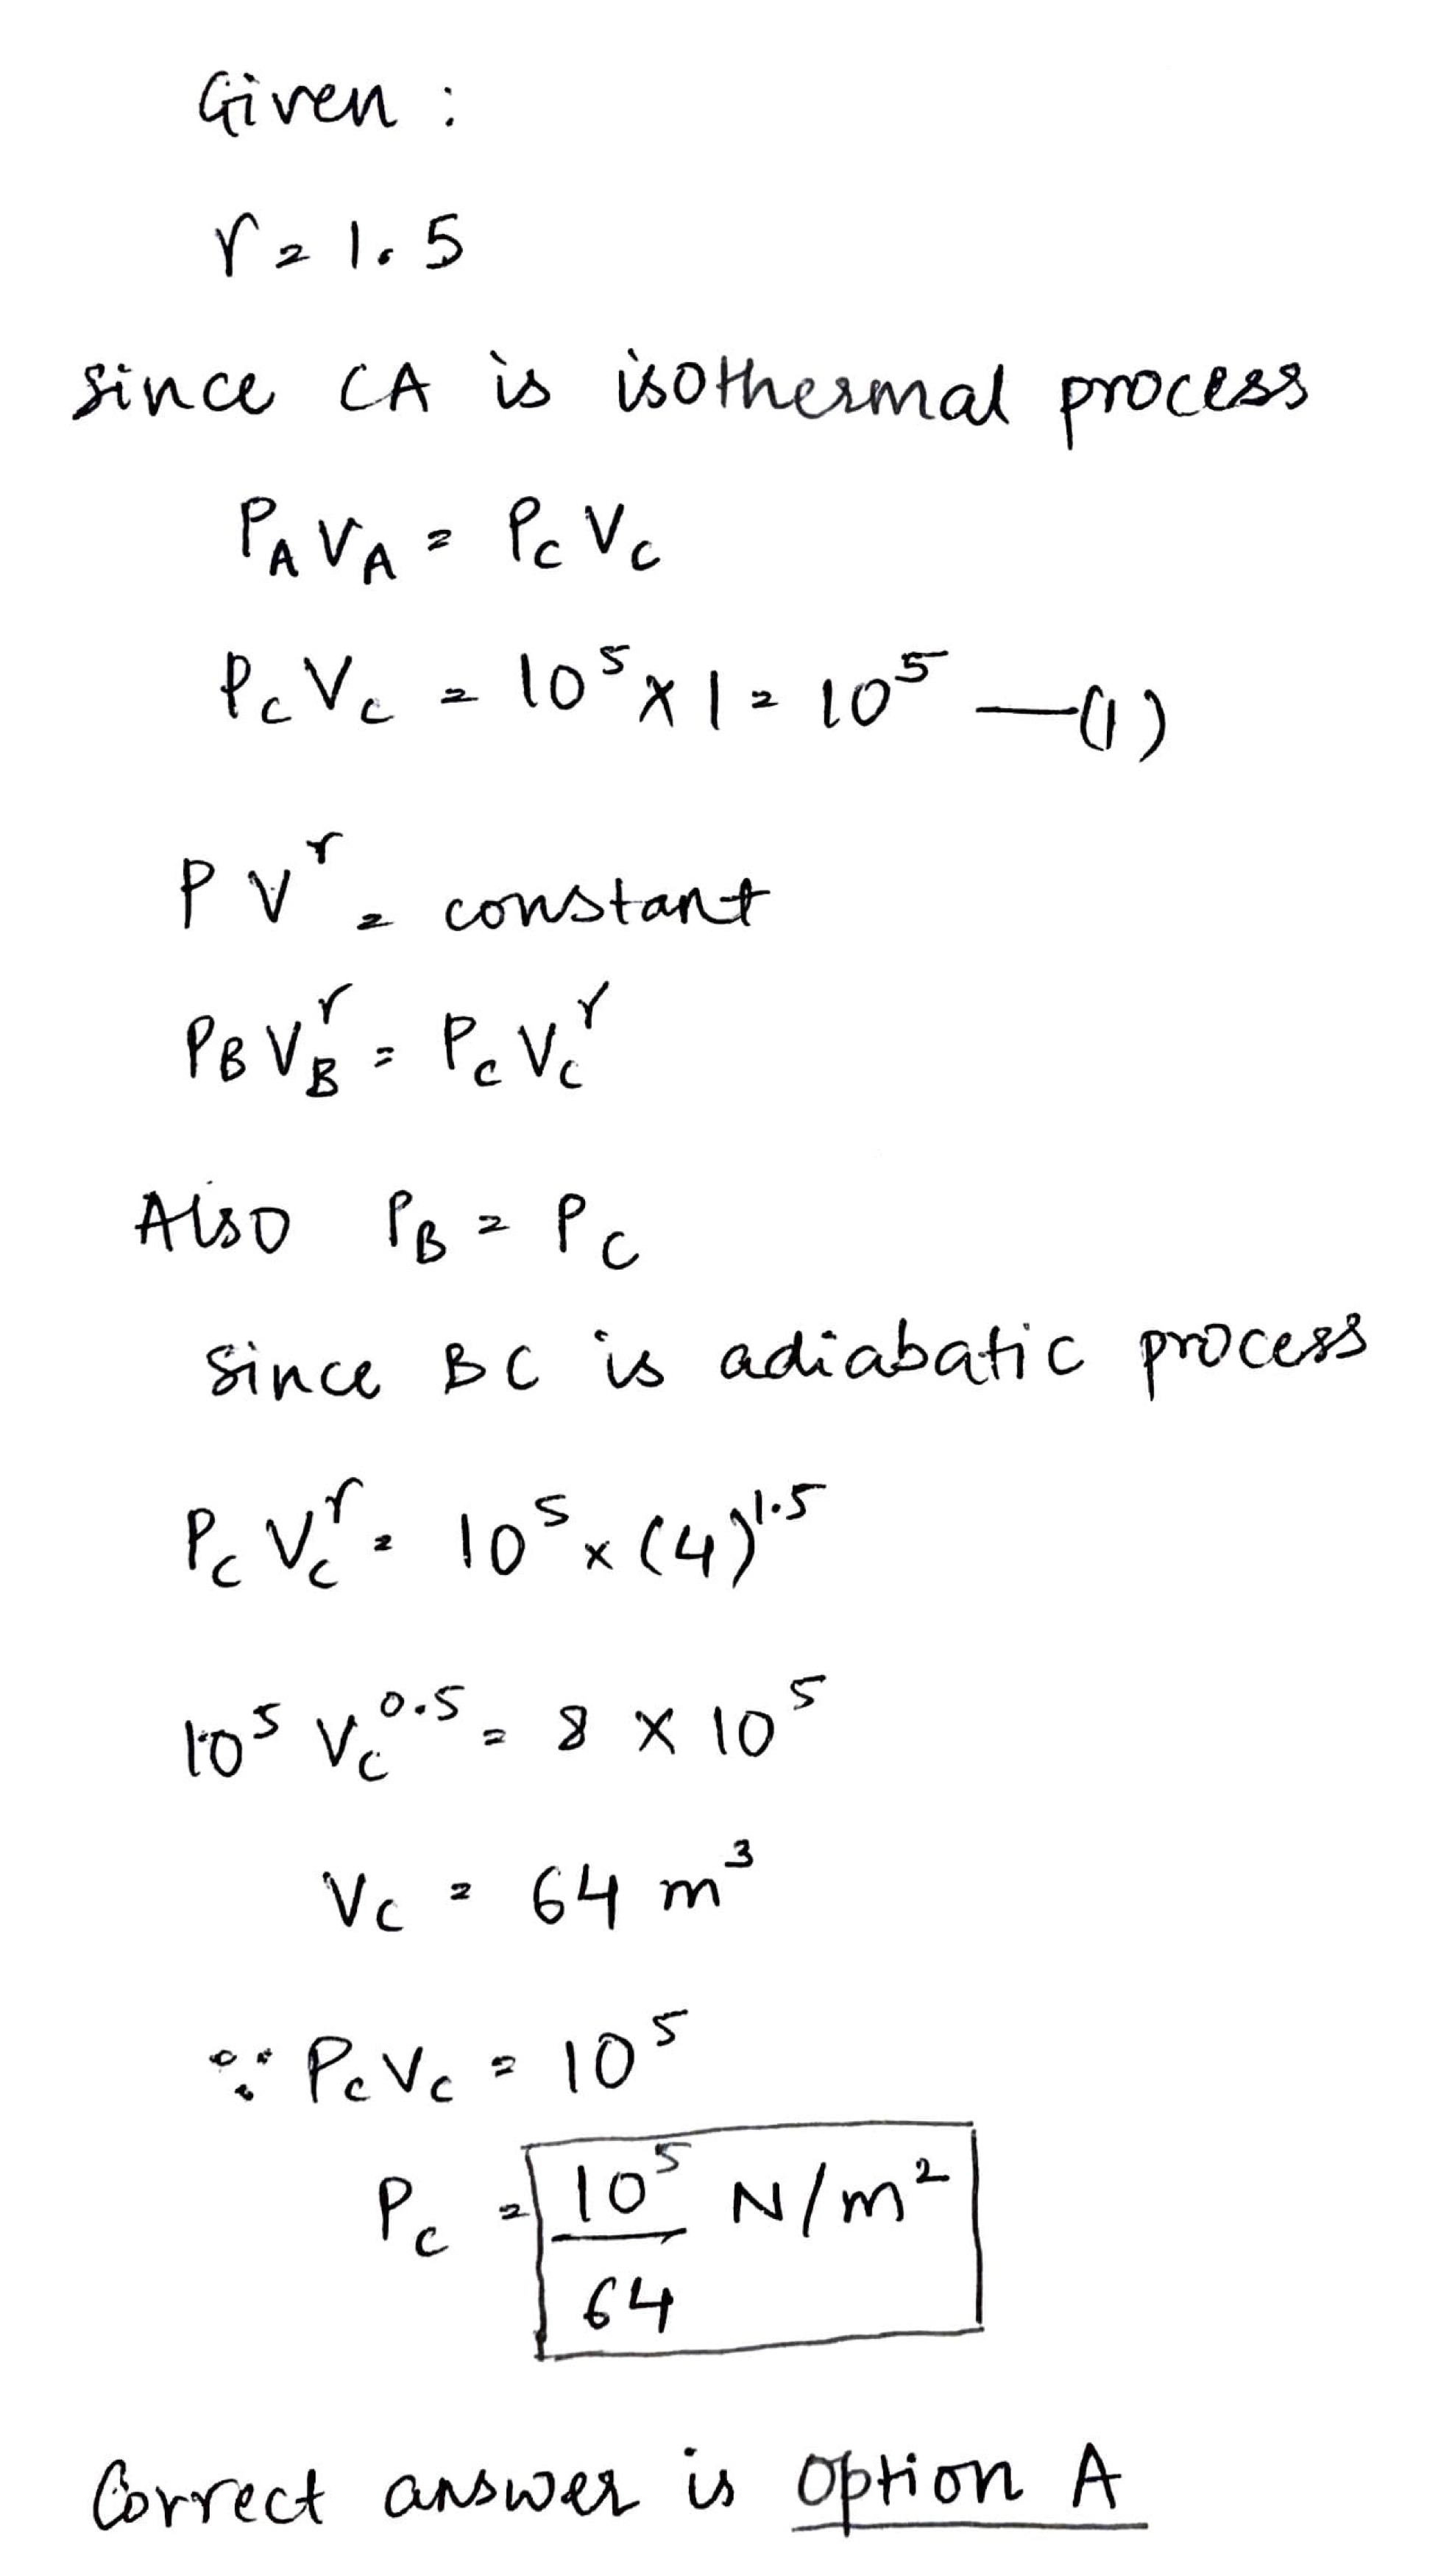 Given :
r = 1.5
since CA is isothermal process
P_A V_A = P_C V_C
P_C V_C = 10^5 × 1 = 10^5 —(1)
P V^r = constant
P_B V_B^r = P_C V_C^r
Also P_B = P_C
since BC is adiabatic process
P_C V_C^r = 10^5 × (4)^1.5
10^5 V_C^0.5 = 8 × 10^5
V_C = 64 m^3
∵ P_C V_C = 10^5
P_C = 10^5/64 N/m^2
Correct answer is option A